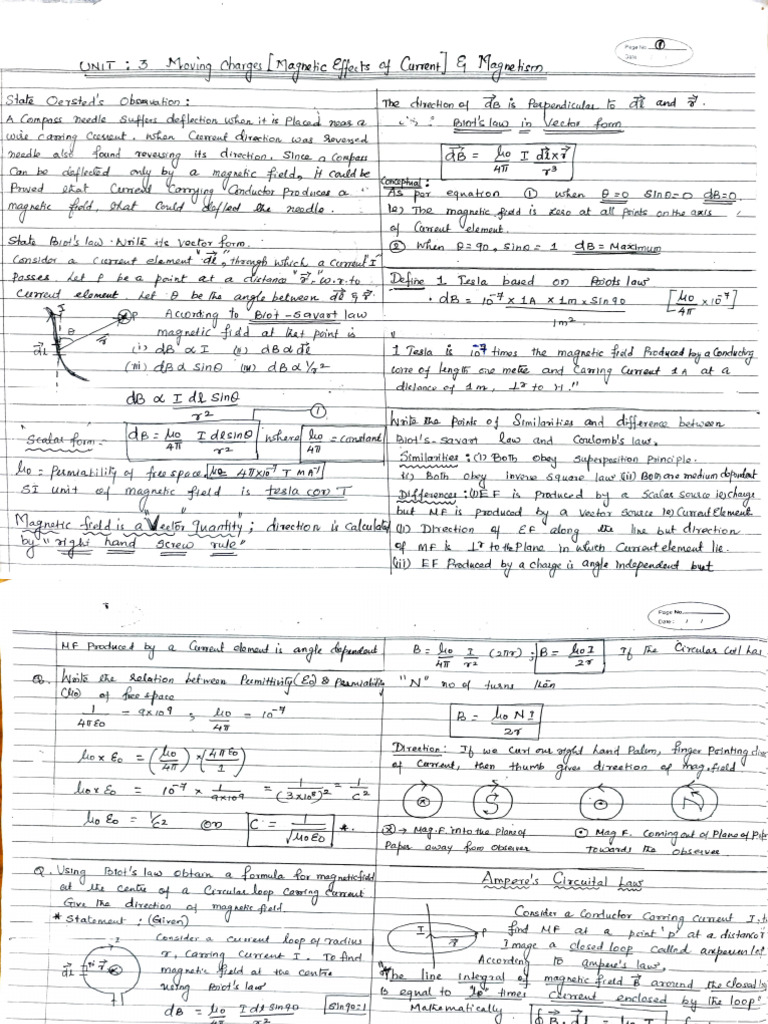 Page No. 1
Date
UNIT : 3 Moving charges [Magnetic Effects of Current] & Magnetism
State Oersted's Observation :
A Compass needle suffers deflection when it is Placed near a
wire carring Current. When Current direction was Reversed
needle also found reversing its direction. Since a Compass
Can be deflected only by a magnetic field, it could be
Proved that Current Carrying Conductor produces a
magnetic field, that could deflect the needle.
State Biot's law. Write its vector form.
Consider a Current element "dl", through which a Current I
Passes. Let P be a point at a distance "r". w.r.to
Current element. Let θ be the angle between dl & r.
According to Biot-Savart law
magnetic field at that point is
(i) dB ∝ I (ii) dB ∝ dl
(iii) dB ∝ sinθ (iv) dB ∝ 1/r²
I
P
θ
r
dl
dB ∝ I dl sinθ / r²
①
"Scalar form" dB = μ0/4π I dl sinθ / r² where μ0/4π = constant
μ0 = Permiability of free space. μ0 = 4π×10⁻⁷ T m A⁻¹
SI unit of magnetic field is tesla (or) T
Magnetic field is a "Vector quantity"; direction is Calculated
by "right hand screw rule"
The direction of dB is Perpendicular to dl and r.
∴ Biot's law in Vector form
dB = μ0/4π I dl×r / r³
Conceptual :
As per equation ① when θ=0 sinθ=0 dB=0.
ie) The magnetic field is zero at all points on the axis
of Current element.
② When θ=90, sinθ=1 dB = Maximum
Define 1 Tesla based on Boiots law
dB = 10⁻⁷ × 1A × 1m × Sin90 / 1m² [μ0/4π × 10⁻⁷]
1 Tesla is 10⁻⁷ times the magnetic field Produced by a Conducting
wire of length one metre and Carring Current 1A at a
distance of 1m, ⊥r to it."
Write the Points of Similarities and difference between
Biot's-Savart law and Coulomb's law.
Similarities : (i) Both obey Superposition Principle.
ii) Both obey inverse square law (iii) Both are medium dependent
Differences : (i) EF is produced by a Scalar source ie) charge
but MF is produced by a Vector source ie) Current Element
(ii) Direction of EF along the line but direction
of MF is ⊥r to the Plane in which Current element lie.
(iii) EF Produced by a charge is angle independent but
Page No.
Date : / /
MF Produced by a Current element is angle dependent
Q. Write the relation between Permittivity (ε0) & Permiability
(μ0) of free space
1/4πε0 = 9×10⁹ ; μ0/4π = 10⁻⁷
μ0 × ε0 = (μ0/4π) × (4πε0/1)
μ0 × ε0 = 10⁻⁷ × 1/9×10⁹ = 1/(3×10⁸)² = 1/c²
μ0 ε0 = 1/c² or C = 1/√μ0ε0 *.
Q. Using Biot's law obtain a formula for magnetic field
at the centre of a Circular loop Carring Current
Give the direction of magnetic field.
* Statement : (Given)
Consider a current loop of radius
r, carring Current I. To find
magnetic field at the centre
using Biot's law
dB = I dl sin90 / r² sin90=1
I
dl
r
B = μ0/4π I/r² (2πr) ; B = μ0I/2r If the Circular coil has
"N" no of turns then
B = μ0NI/2r
Direction : If we curl our right hand Palm, finger Pointing
of Current, then thumb gives direction of mag. field
S N
ⓧ → Mag. F. into the Plane of
Paper away from observer
⊙ Mag F. Coming out of Plane of
towards the observer
Ampere's Circuital Law
Consider a Conductor Carring current I,
find MF at a point 'P' at a distance 'r'
Image a closed loop called
According to ampere's law,
I
P
r
"The line integral of magnetic field B around the closed
is equal to "μ0" times Current enclosed by the loop"
Mathematically ∮ B . dl = μ0 I